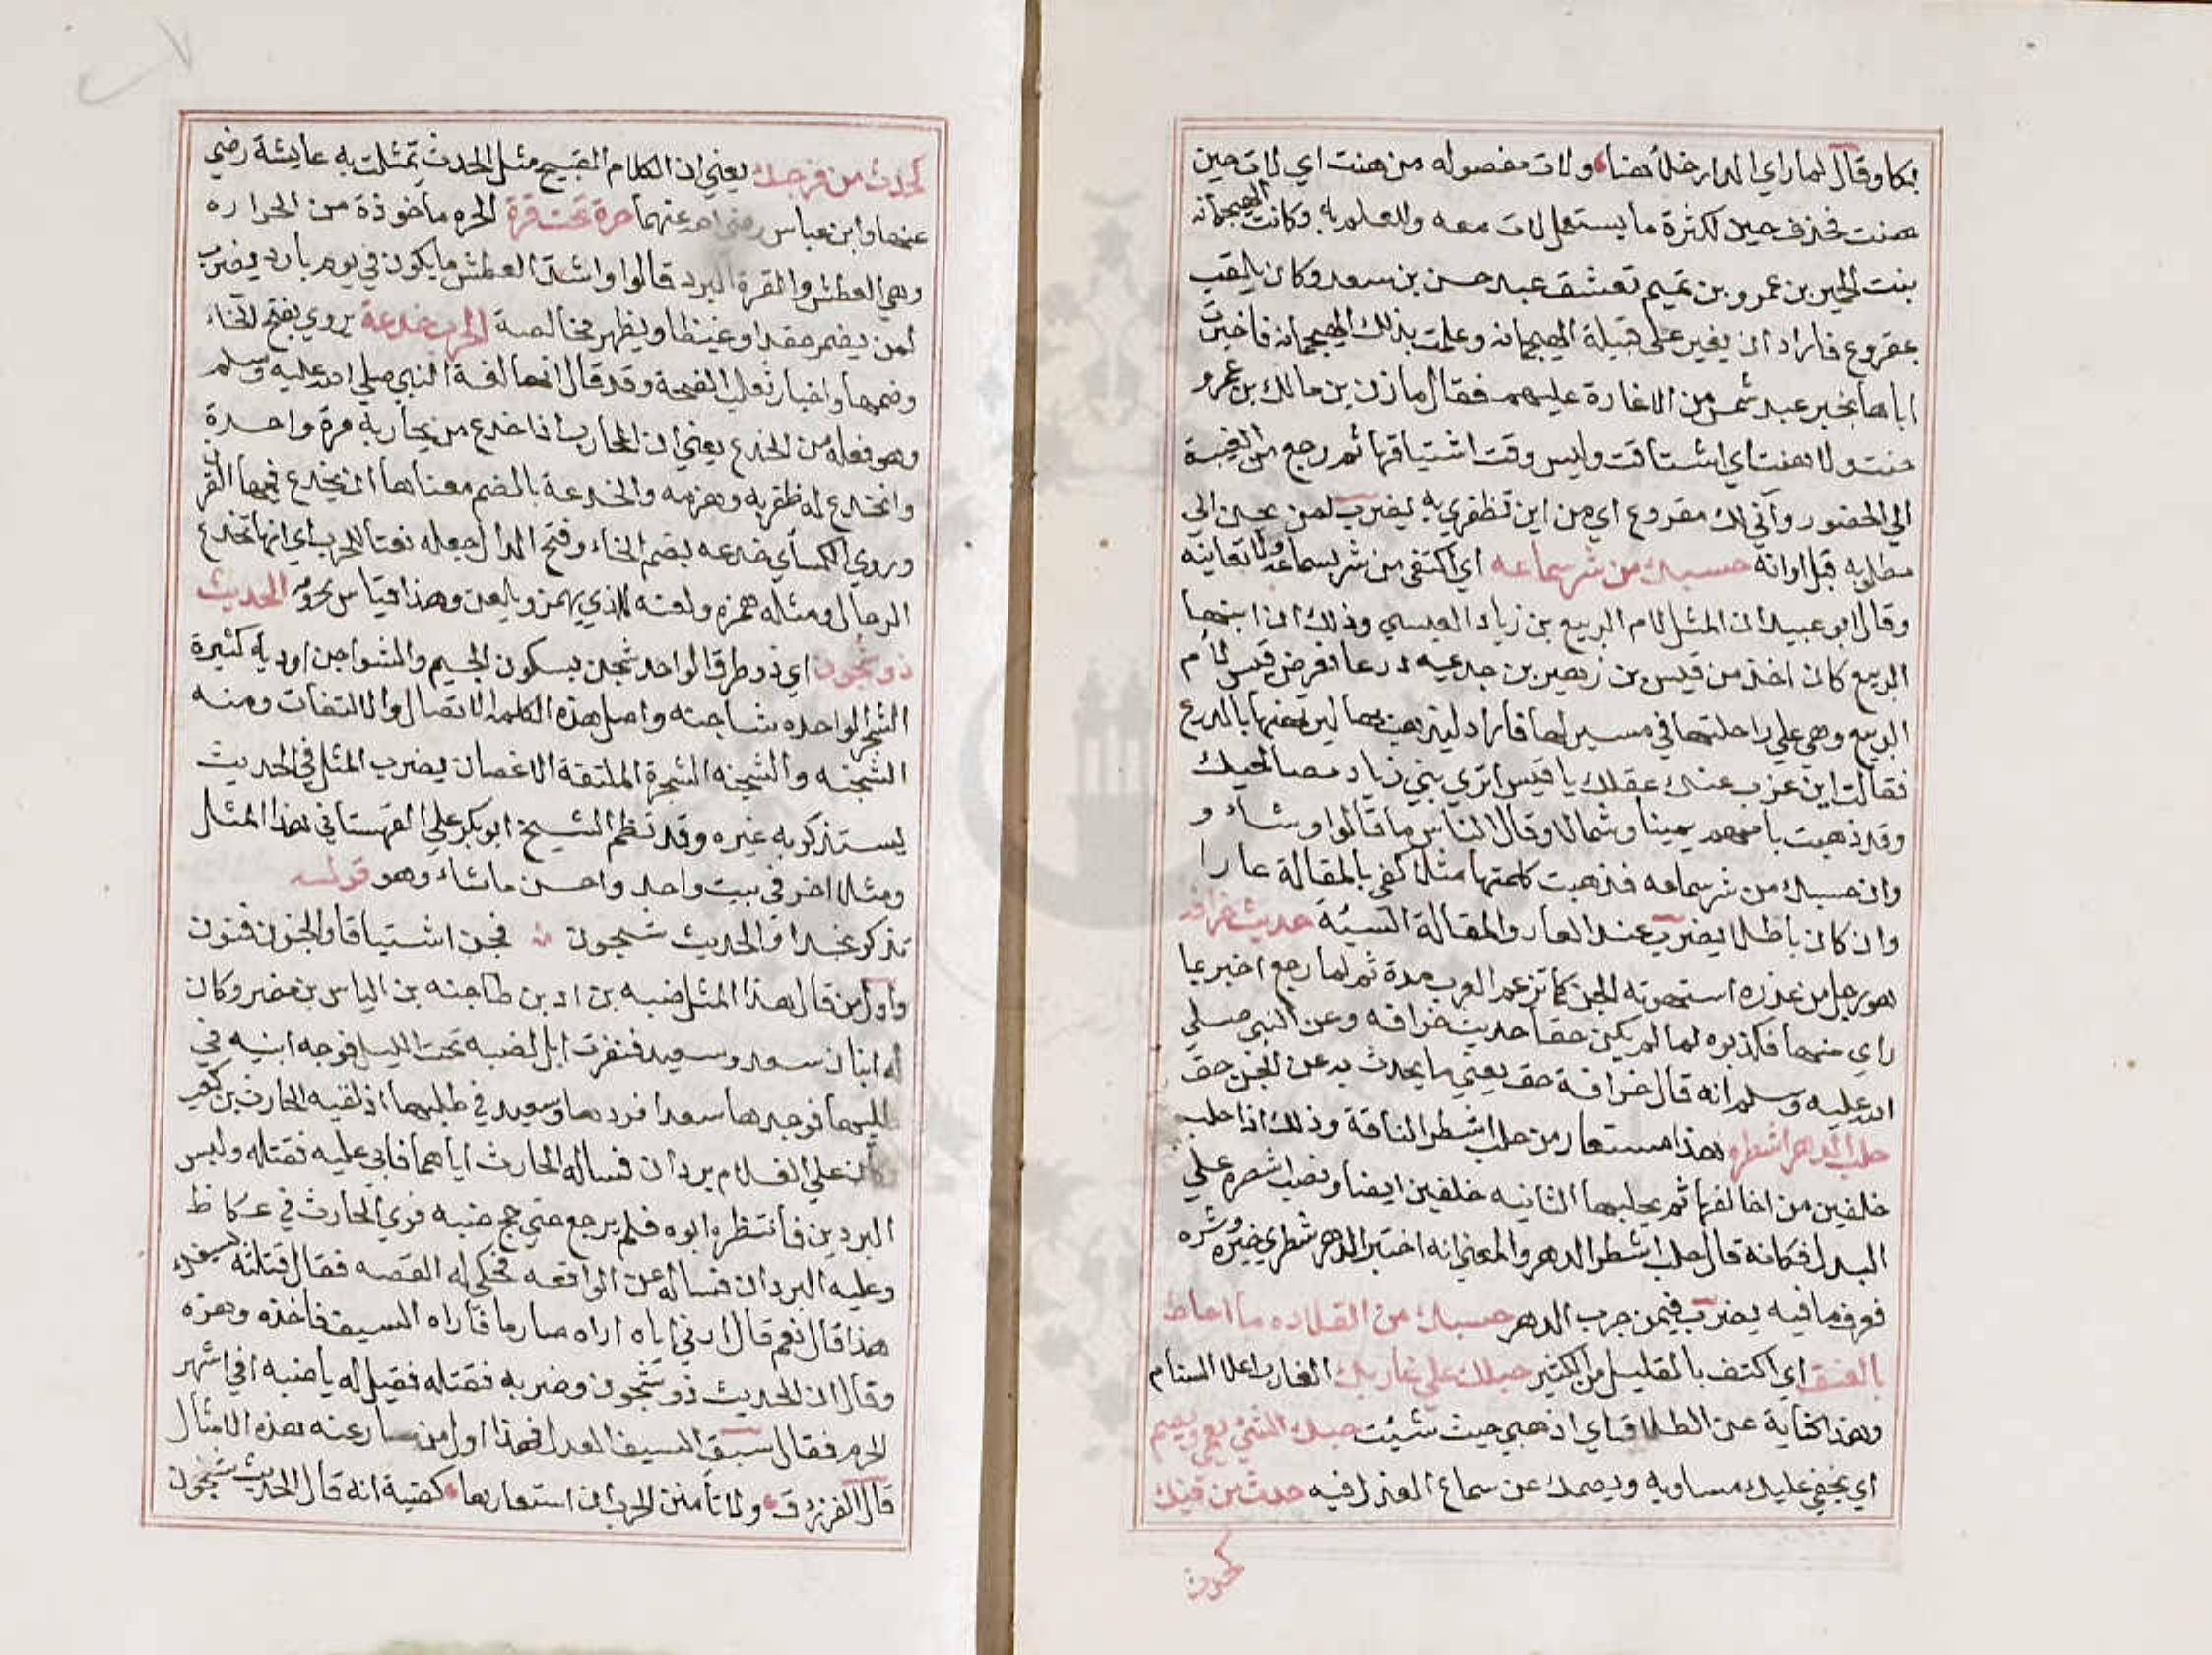 بكا وقال لما راي الدار خلأ هنا ولات مفصوله من هنت اي لات حين
هنت فحذف حين لكثرة ما يستعمل لات معه والعلم به وكانت الهيجمانه
بنت الخير بن عمرو بن تميم تعشق عبد حسن بن سعد وكان يلقب
بمقروع فاراد ان يغير علي قبيلة الهيجمانه وعلمت بذلك الهيجمانه فاخبرت
اباها بخبر عبد شمس من الاغارة عليهم فقال مازن بن مالك بن عمرو
حنت ولا هنت اي اشتاقت وليس وقت اشتياقها ثم رجع من الغيبة
الي الحضور وأني لك مقروع اي من اين تظفري به يضرب لمن يحن الي
مطلوبه قبل اوانه حسبك من شر سماعه اي اكتفي من شر بسماعه ولا تعاينه
وقال ابو عبيد ان المثل لام الربيع بن زياد العبسي وذلك ان ابنها
الربيع كان اخذ من قيس بن زهير بن جذيمه درعا فعرض قيس لأم
الربيع وهي علي راحلتها في مسير لها فاراد ليذهب بها ليرتهنها بالدرع
فقالت اين عزب عنك عقلك يا قيس اتري بني زياد مصالحيك
وقد ذهبت بامهم يمينا وشمالا وقال الناس ما قالوا وشاء و
وان حسبك من شر سماعه فذهبت كلمتها مثلا كفي بالمقالة عارا
وان كان باطلا يضرب عند العار والمقالة السيئة حديث خرافه
هو رجل من عذره استهوته الجن كما تزعم العرب مدة ثم لما رجع اخبر بما
راي منها فكذبوه لما لم يكن حقا حديث خرافه وعن النبي صلي
الله عليه وسلم انه قال خرافة حق يعني ما يحدث به عن الجن حق
حلب الدهر اشطره هذا مستعار من حلب اشطر الناقة وذلك اذا حلب
خلفين من اخالفها ثم يحلبها الثانيه خلفين ايضا ونصب اشطره علي
البدل فكانه قال حلب اشطر الدهر والمعني انه اختبر الدهر شطري خيره وشره
فعرف ما فيه يضرب فيمن جرب الدهر حسبك من القلاده ما احاط
بالعنق اي اكتف بالقليل من الكثير حبلك علي غاربك الغارب اعلا السنام
وهذا كناية عن الطلاق اي اذهبي حيث شئت حبك الشئ يعمي ويصم
اي يخفي عليك مساويه ويصمك عن سماع العذل فيه حدث من فيك
كحدث
كحدث من فرجك يعني ان الكلام القبيح مثل الحدث تمثلت به عايشة رضي
عنها وابن عباس رضي الله عنهما حرة تحت قرة الحره مأخوذة من الحراره
وهي العطش والقرة البرد قالوا واشد العطش ما يكون في يوم بارد يضرب
لمن يضمر حقدا وغيظا ويظهر مخالصة الحرب خدعة يروي بفتح الخاء
وضمها واختار ثعلب الفتحة وقد قال انها لغة النبي صلي الله عليه وسلم
وهو فعلة من الخدع يعني ان المحارب اذا خدع من يحاربه مرة واحدة
وانخدع له ظفر به وهزمه والخدعة بالضم معناها ان يخدع فيها القرن
وروي الكسأي خدعه بضم الخاء وفتح الدال جعله نعتا للحرب اي انها تخدع
الرجال ومثله همزه ولعنه للذي يهمز ويلعن وهذا قياس الحديث
ذو شجون اي ذو طرق الواحد شجن بسكون الجيم والشواجن اوديه كثيرة
الشجر الواحده شاجنه واصل هذه الكلمه الاتصال والالتفات ومنه
الشجنه والشجنه الشجرة الملتفة الاغصان يضرب المثل في الحديث
يستذكر به غيره وقد نظم الشيخ ابو بكر علي القهستاني هذا المثل
ومثلا اخر في بيت واحد واحسن ما شاء وهو قوله
تذكر نجدا والحديث شجون فجن اشتياقا والجنون فنون
واول من قال هذا المثل ضبه بن اد بن طابخه بن الياس بن مضر وكان
له ابنان سعد وسعيد فنفرت ابل لضبه تحت الليل فوجه ابنيه في
طلبها فوجدها سعد فردها وسعيد في طلبها اذ لقيه الحارث بن كعب
وكان علي الغلام بردان فساله الحارث اياهما فابي عليه فقتله ولبس
البردين فانتظره ابوه فلم يرجع حتي حج ضبه فري الحارث في عكاظ
وعليه البردان فساله عن الواقعه فحكي له القصه فقال قتلته بسيفك
هذا قال نعم قال ارني اياه اراه صارما فاراه السيف فاخذه وهزه
وقال ان الحديث ذو شجون وضربه فقتله فقيل له يا ضبه افي اشهر
الحرم فقال سبق السيف العدل فهذا اول من سار عنه هذه الامثال
قال الفرزدق ولا تأمنن الحرب ان استعارها كضبة انه قال الحديث شجون